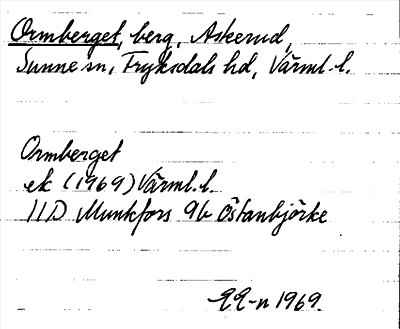 Ormberget, berg, Askerud,
Sunne sn, Fryksdals hd, Värml. l.
Ormberget
ek (1969) Värml. l.
11D Munkfors 9b Östanbjörke
-n 1969.